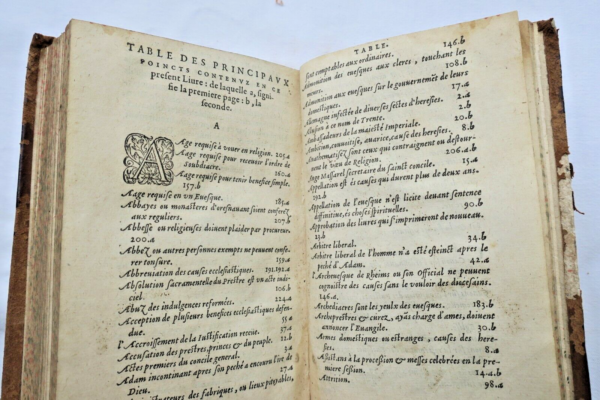 TABLE DES PRINCIPAVX
POINCTS CONTENVZ EN CE
present Liure: de laquelle a, signi-
fie la premiere page: b, la
seconde.
A
AAge requise à vouer en religion. 205.a
Age requise pour receuoir l'ordre de
soubdiacre. 160.a
Age requise pour tenir benefice simple.
157.b
Aage requise en vn Euesque. 185.a
Abbayes ou monasteres d'oresnauant sient conferez
aux reguliers. 207.b
Abbesse ou religieuses doiuent plaider par procureur.
200.a
Abbez ou autres personnes exempts ne peuuent confe-
rer tonsure. 159.a
Abbreuiation des causes ecclesiastiques. 191.192.a
Absolution sacramentelle du Prestre est vn acte iudi-
ciel. 106.b
Abuz des indulgences reformées. 224.a
Acception de plusieurs benefices ecclesiastiques defen-
due. 57.a
l'Accroissement de la Iustification receüe. 32.a
Accusation des prestres, princes & du peuple. 3.a
Actes premiers du concile general. 2.a
Adam incontinant apres son peché a encouru l'ire de
Dieu.
des fabriques, ou lieux
TABLE.
sont comptables aux ordinaires. 146.b
Admonition des euesques aux clercs, touchant les
mœurs. 108.b
Admonition aux euesques sur le gouuernemēt de leurs
domestiques. 17.a
Allemagne infectée de diuerses sectes d'heresies. 2.a
Allusion à ce nom de Trente. 2.a
Ambassadeurs de la maiesté Imperiale. 20.b
Ambition, conuoitise, auarice, cause des heresies. 8.b
Anathematisez sont ceux qui contraignent ou destour-
nent le vœu de Religion. 206.a.b
Ange Massarel secretaire du sainct concile. 15.a
Appellation est és causes qui durent plus de deux ans.
192.b
Appellation de l'euesque n'est licite deuant sentence
diffinitiue, és choses spirituelles. 90.b
Approbation des liures qui s'imprimeront de nouueau.
23.b
Arbitre liberal. 34.b
Arbitre liberal de l'homme n'a esté esteinct apres le
peché d'Adam. 42.a
Archeuesque de Rheims ou son Official ne peuuent
cognoistre des causes sans le vouloir des diocesains.
146.a
Archediacres sont les yeux des euesques. 183.b
Archeprestres & curez, ayās charge d'ames, doiuent
annoncer l'Euangile. 30.b
Armes domestiques ou estranges, causes des here-
sies. 8.a
Assistans à la procession & messes celebrées en la pre-
miere session. 14.a.b
Attrition. 98.a